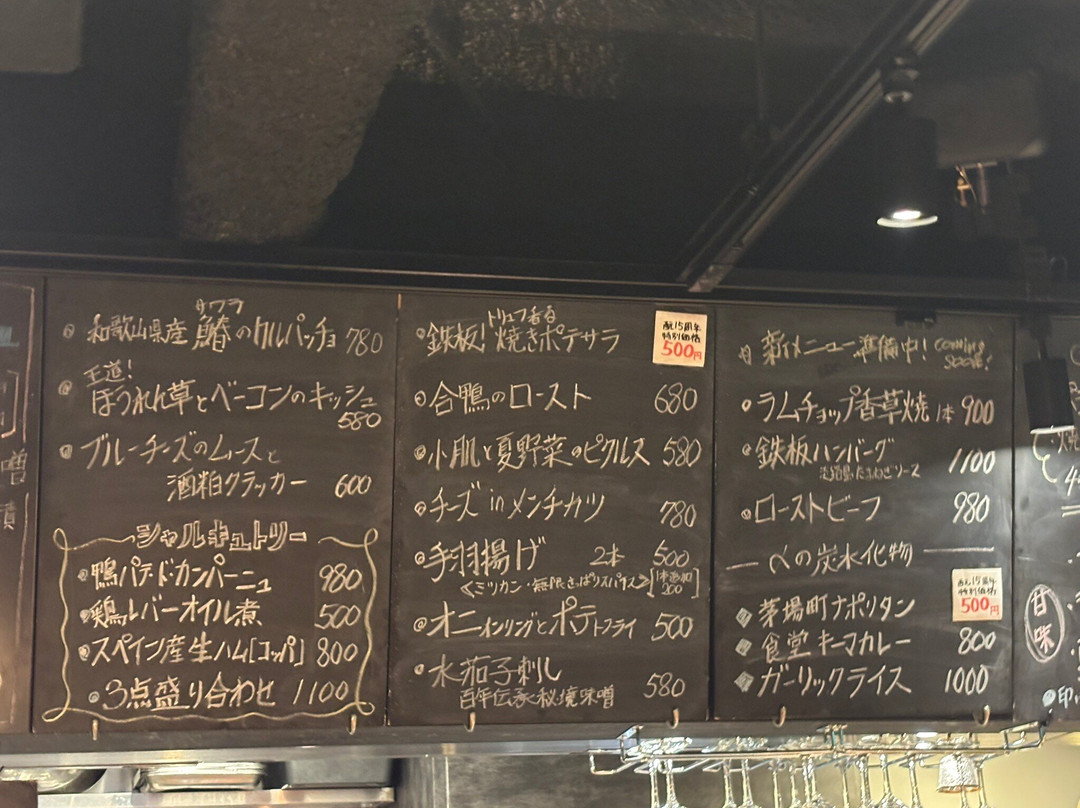 サワラ
和歌山県産 鰆のカルパッチョ 780
王道!
ほうれん草とベーコンのキッシュ
580
ブルーチーズのムースと
酒粕クラッカー 600
シャルキュトリー
鴨パテ・ド・カンパーニュ 980
鶏レバーオイル煮 500
スペイン産生ハム[コッパ] 800
3点盛り合わせ 1100
トリュフ香る
鉄板!焼きポテサラ
15周年
特別価格
500円
合鴨のロースト 680
小肌と夏野菜のピクルス 580
チーズinメンチカツ 780
手羽揚げ 2本 500
<ミツカン・無限さっぱりスパイス> [1本追加
200]
オニオンリングとポテトフライ 500
水茄子刺し
百年伝承・秘境味噌 580
新メニュー準備中! coming
soon!
ラムチョップ香草焼 1本 900
鉄板ハンバーグ 1100
淡路島・たまねぎソース
ローストビーフ 980
〆の炭水化物
15周年
特別価格
500円
茅場町ナポリタン
食堂キーマカレー 800
ガーリックライス 1000
甘味